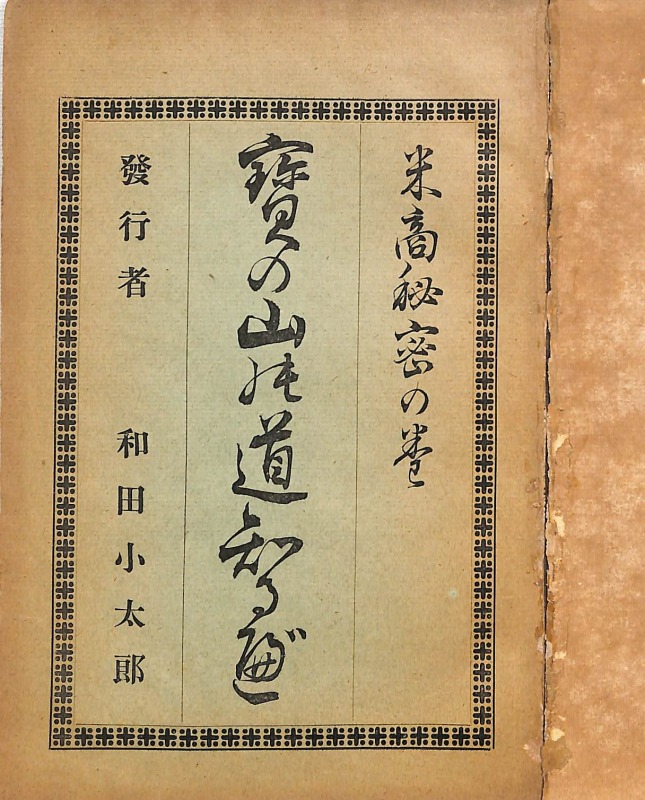 米商秘密の巻
寶の山能道知る遍゛
發行者 和田小太郎